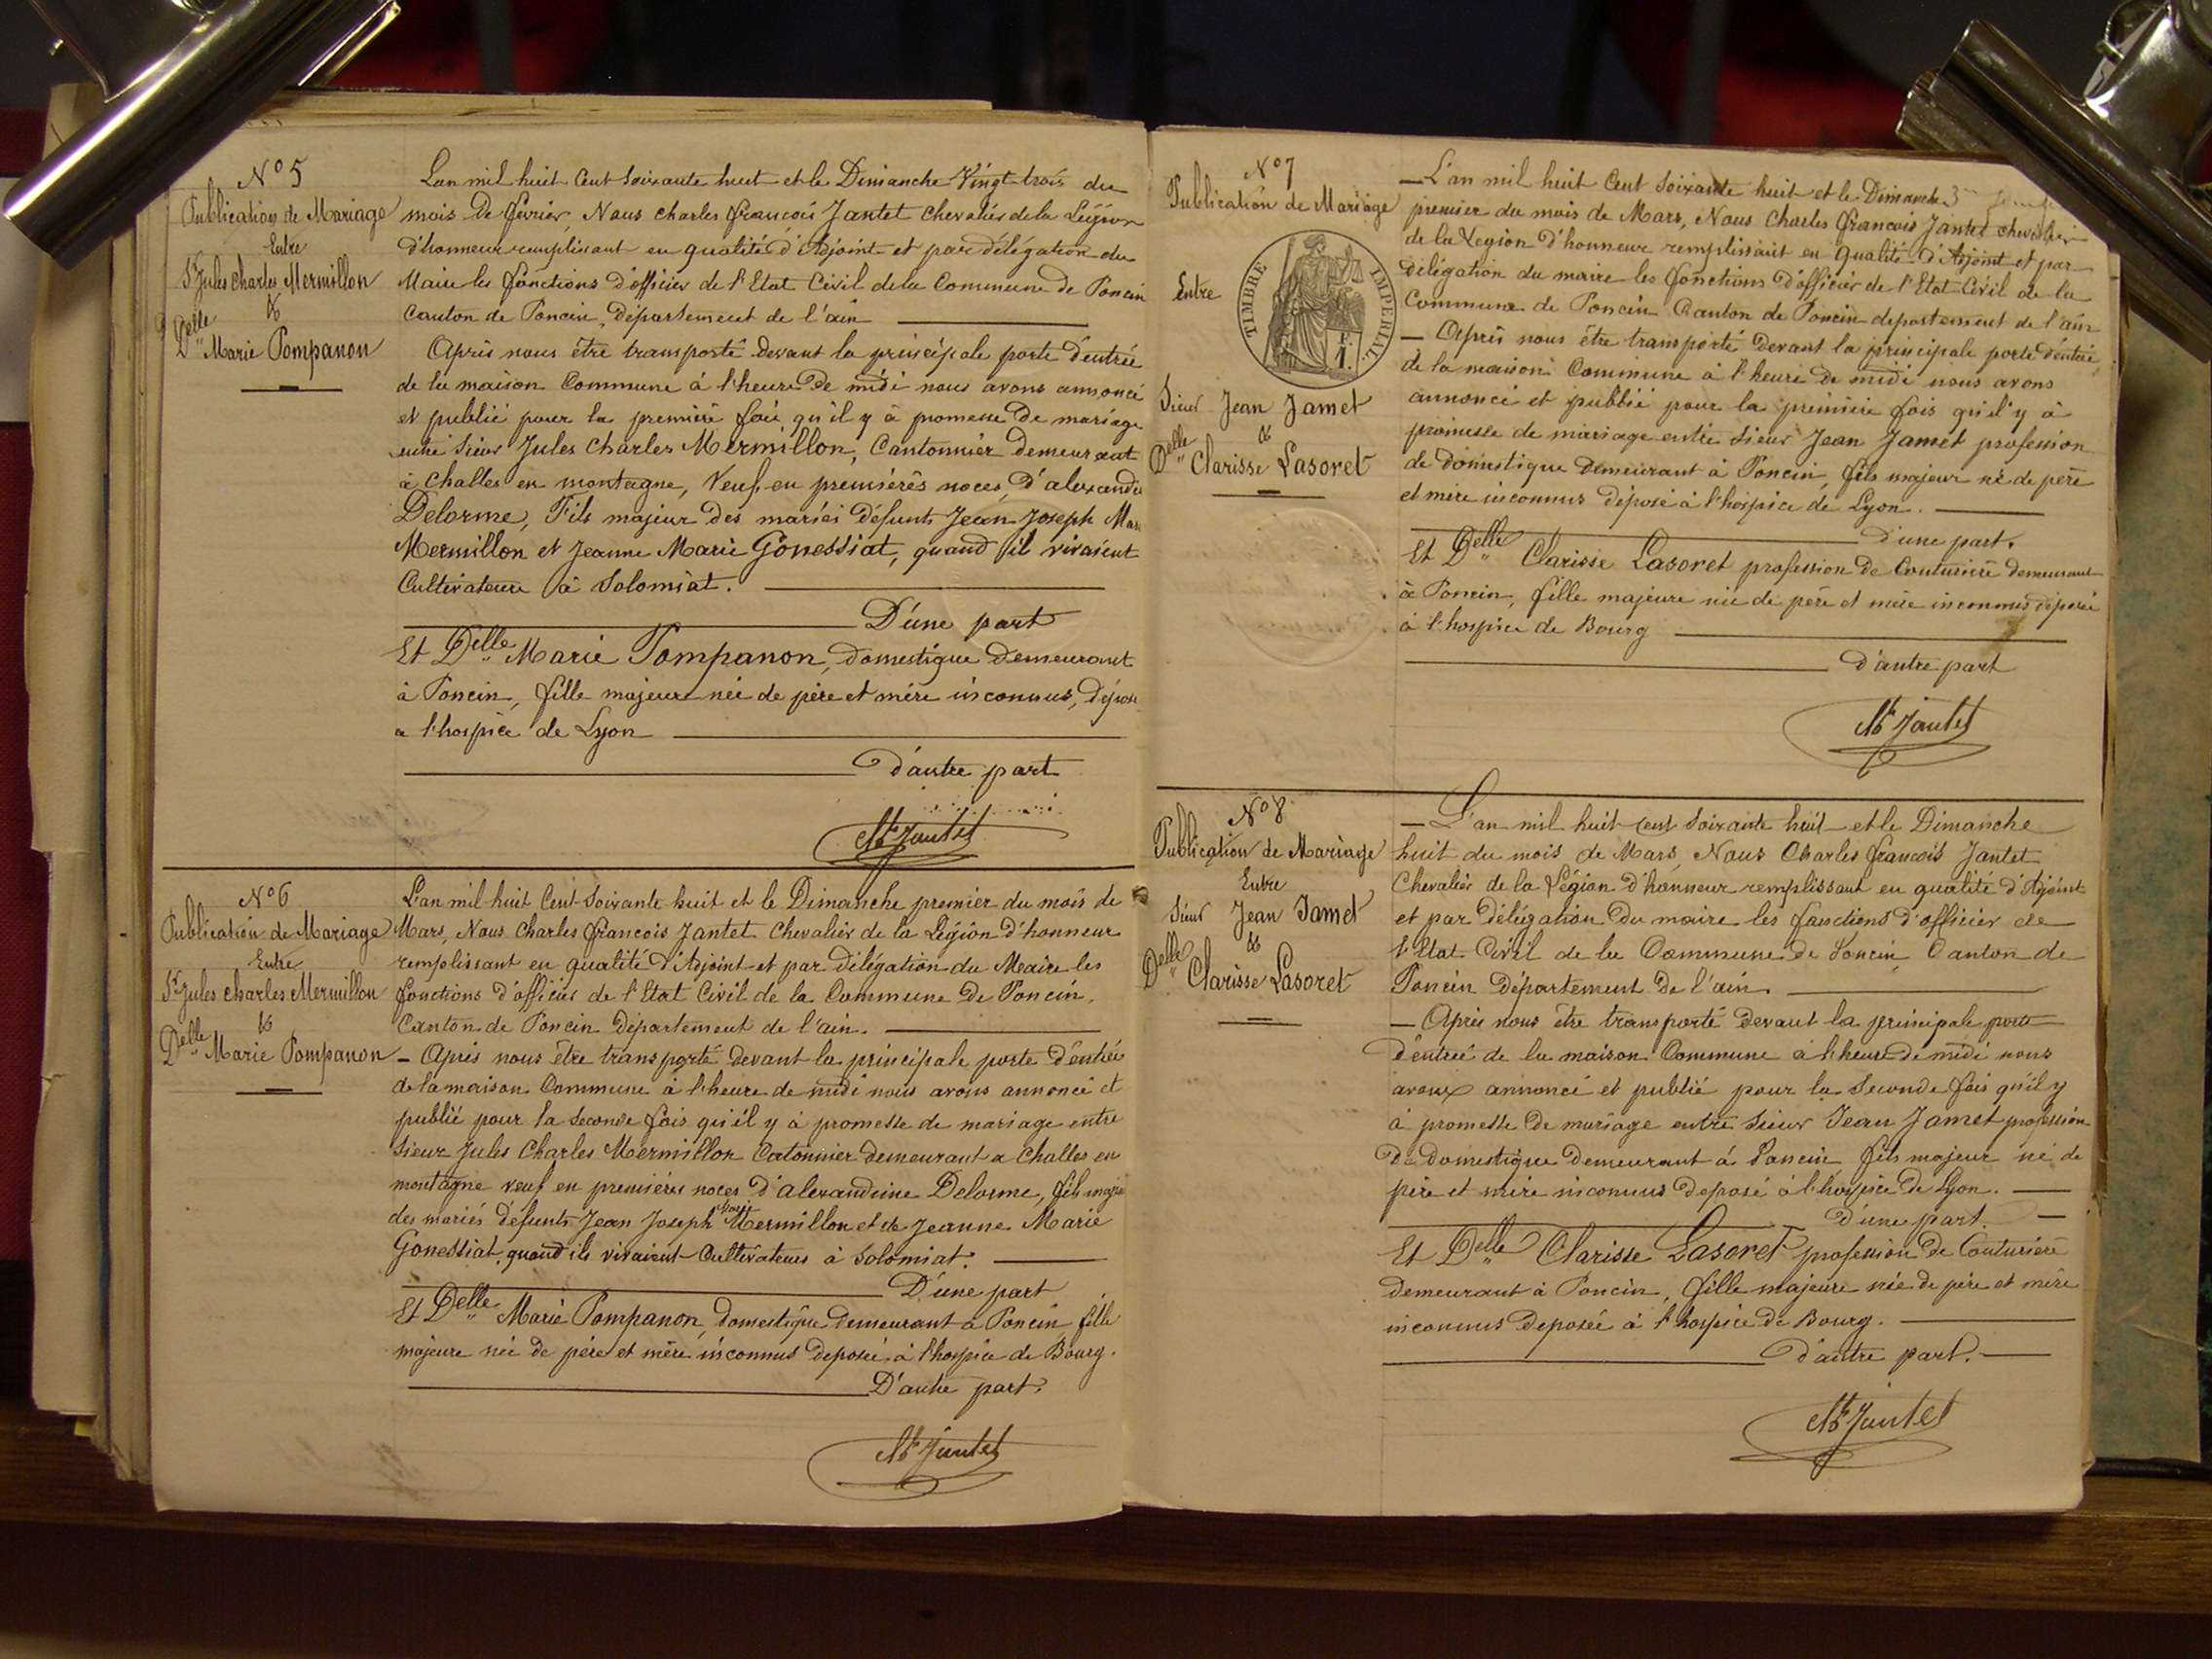 N° 5
Publication de Mariage
Entre
Sr Jules Charles Mermillon
&
Delle Marie Pompanon
L'an mil huit Cent Soixante huit et le Dimanche Vingt trois du
mois De février, Nous charles françois Jantet Chevalier de la Légion
d'honneur remplissant en qualité d'Adjoint et par délégation du
Maire les fonctions d'officier de l'Etat Civil de la Commune de Poncin
Canton de Poncin, Département de l'ain
Après nous être transporté Devant la principale porte d'entrée
de la maison Commune à l'heure De midi nous avons annoncé
et publié pour la première fois qu'il y à promesse De mariage
entre Sieur Jules Charles Mermillon, Cantonnier demeurant
à Challes en montagne, Veuf en premières noces, D'
Delorme, Fils majeur Des mariés Défunts Jean Joseph
Mermillon et Jeanne Marie Gonessiat, quand il vivaient
Cultivateurs à Solomiat.
D'une part
Et Delle Marie Pompanon, Domestique Demeurant
à Poncin, fille majeure née de père et mère inconnus,
a l'hospice de Lyon
D'autre part
Jantet
N° 6
Publication de Mariage
Entre
Sr Jules Charles Mermillon
&
Delle Marie Pompanon
L'an mil huit Cent Soixante huit et le Dimanche premier du mois de
Mars, Nous Charles françois Jantet Chevalier de la Légion d'honneur
remplissant en qualité d'Adjoint et par Délégation du Maire les
fonctions d'officier de l'Etat Civil de la Commune De Poncin,
Canton de Poncin Département de l'ain.
— Après nous être transporté Devant la principale porte D'entrée
de la maison Commune à l'heure de midi nous avons annoncé et
publié pour la seconde fois qu'il y à promesse de mariage entre
Sieur Jules Charles Mermillon Catonnier demeurant a Challes en
montagne veuf en premières noces D'alexandrine Delorme, fils
des mariés défunts Jean Joseph Marie Mermillon et de Jeanne Marie
Gonessiat, quand ils vivaient Cultivateurs à Solomiat.
D'une part
Et Delle Marie Pompanon, Domestique demeurant à Poncin, fille
majeure née De père et mère inconnus deposée à l'hospice de Bourg.
D'autre part.
Jantet
N° 7
Publication de Mariage
Entre
TIMBRE IMPERIAL
1 F.
Sieur Jean Jamet
&
Delle Clarisse Lasoret
— L'an mil huit Cent Soixante huit et le Dimanche
premier du mois de Mars, Nous Charles francois Jantet chevalier
de la Legion d'honneur remplissant en qualité d'Adjoint et par
délégation du maire les fonctions d'officier de l'Etat Civil de la
Commune de Poncin Canton de Poncin departement de l'ain
— Après nous être transporté Devant la principale porte d'entrée
de la maison Commune à l'heure De midi nous avons
annoncé et publié pour la première fois qu'il y à
promesse de mariage entre Sieur Jean Jamet profession
de domestique Demeurant à Poncin, fils majeur né de père
et mère inconnus déposé à l'hospice de Lyon.
d'une part.
Et Delle Clarisse Lasoret profession De Couturière demeurant
à Poncin, fille majeure née de père et mère inconnus déposée
à l'hospice de Bourg
d'autre part
Jantet
N° 8
Publication de Mariage
Entre
Sieur Jean Jamet
&
Delle Clarisse Lasoret
— L'an mil huit cent Soixante huit et le Dimanche
huit du mois de Mars, Nous Charles francois Jantet
Chevalier de la Légion d'honneur remplissant en qualité d'Adjoint
et par délégation Du maire les fonctions d'officier de
l'Etat Civil de la Commune de Poncin Canton de
Poncin Département De l'ain.
— Après nous être transporté Devant la principale porte
D'entrée de la maison Commune à l'heure de midi nous
avons annoncé et publié pour la Seconde fois qu'il y
à promesse De mariage entre Sieur Jean Jamet profession
De Domestique Demeurant à Poncin fils majeur né de
père et mère inconnus deposé à l'hospice De Lyon.
d'une part.
Et Delle Clarisse Lasoret profession De Couturière
demeurant à Poncin, fille majeure née De père et mère
inconnus Deposée à l'hospice de Bourg.
D'autre part.
Jantet